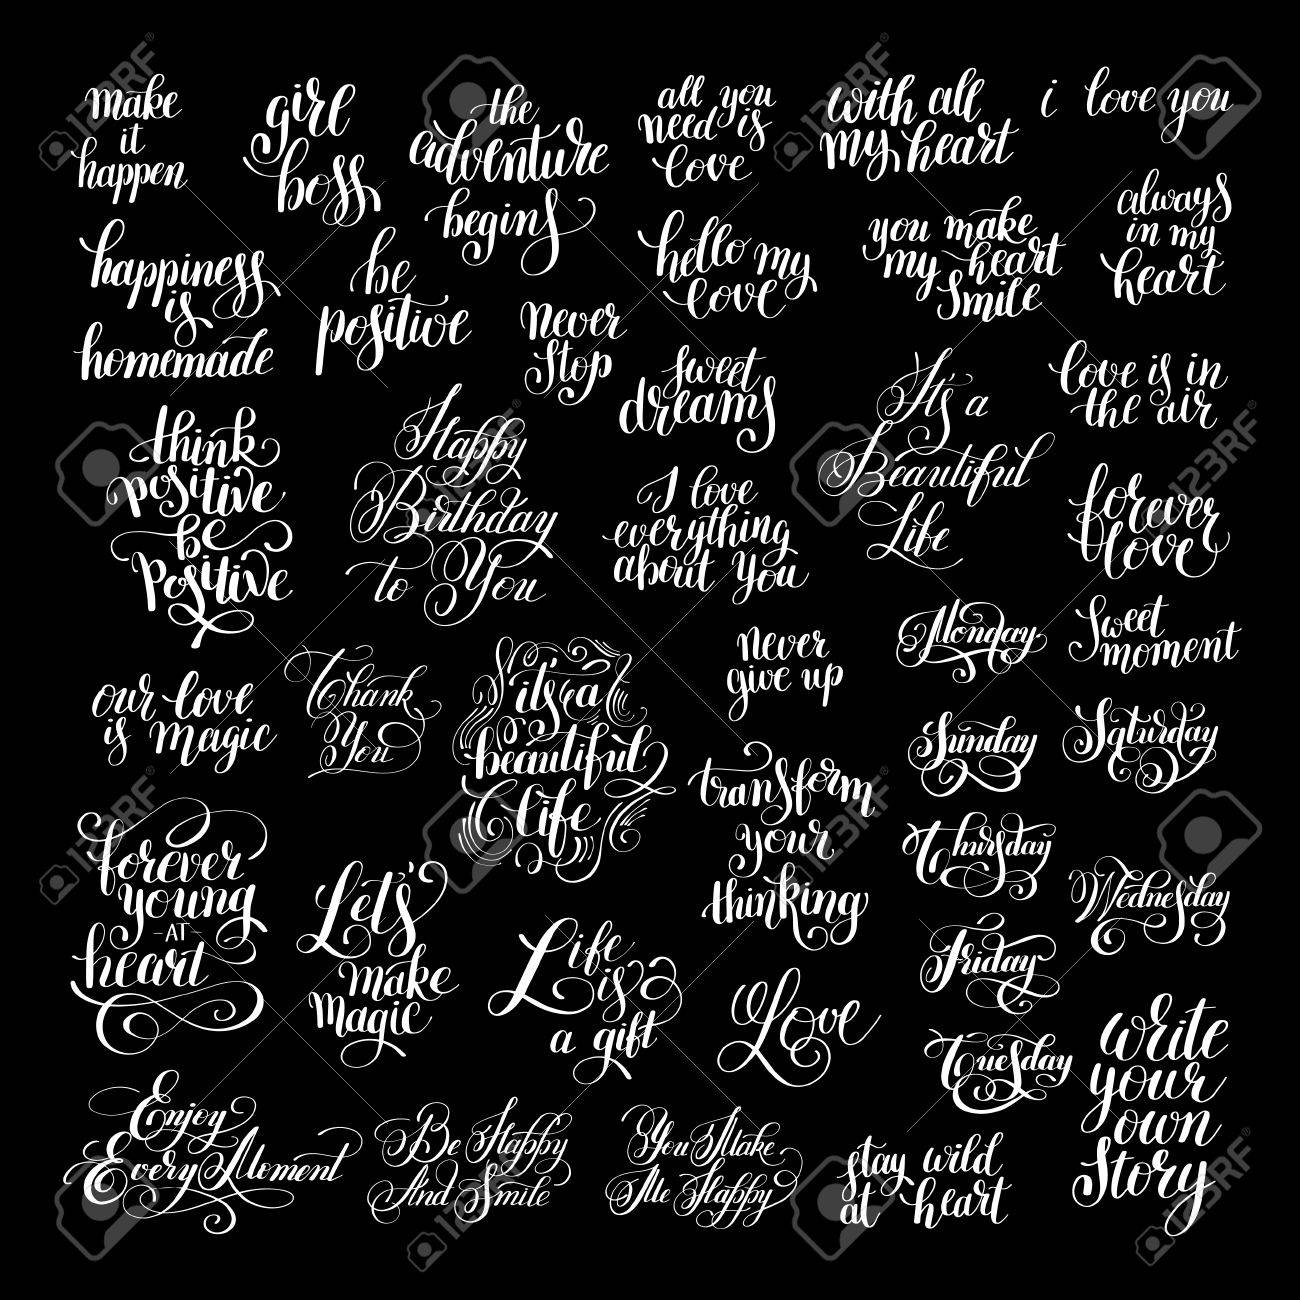 make
it
happen
girl
boss
the
adventure
begins
all you
need is
love
with all
my heart
i love you
happiness
is
homemade
be
positive
never
stop
hello my
love
you make
my heart
smile
always
in my
heart
sweet
dreams
It's a
Beautiful
Life
love is in
the air
think
positive
be
positive
Happy
Birthday
to You
I love
everything
about you
forever
love
never
give up
Monday
Sweet
moment
our love
is magic
Thank
You
it's a
beautiful
life
transform
your
thinking
Sunday
Saturday
Thursday
Wednesday
forever
young
-AT-
heart
Let's
make
magic
Life
is
a gift
Love
Friday
Tuesday
write
your
own
story
Enjoy
Every Moment
Be Happy
And Smile
You Make
Me Happy
stay wild
at heart
123RF
123RF
123RF
123RF
123RF
123RF
123RF
123RF
123RF
123RF
123RF
123RF